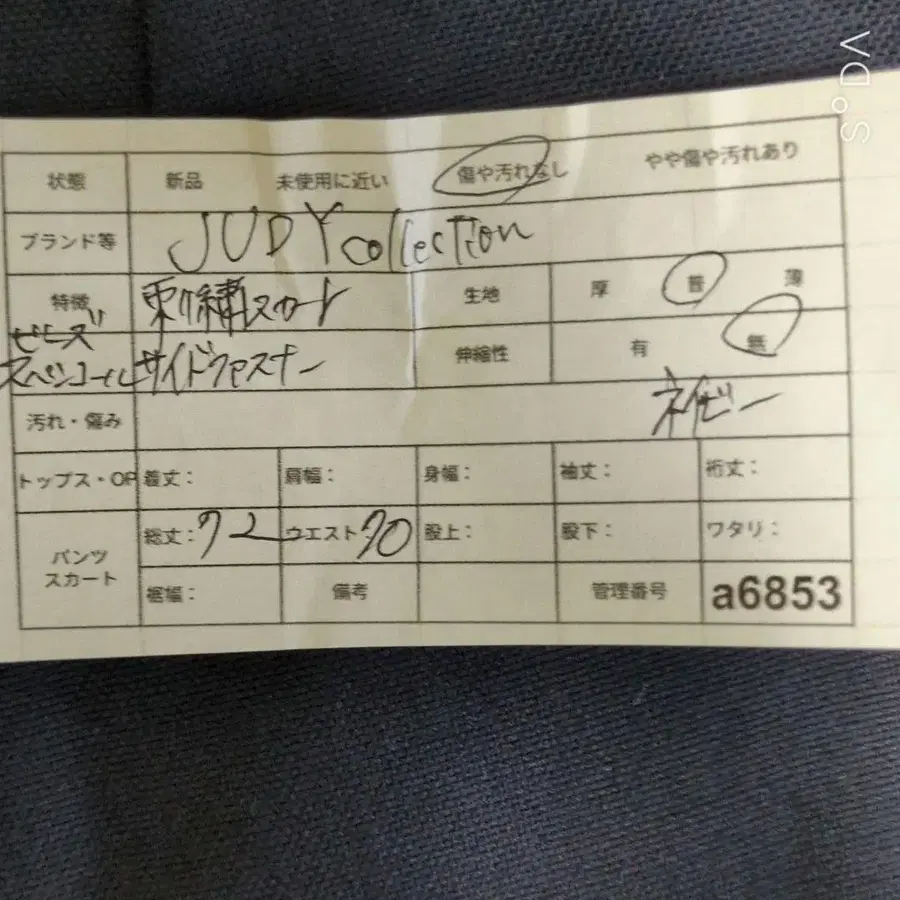 状態 新品 未使用に近い 傷や汚れなし やや傷や汚れあり
ブランド等 JUDY collection
特徴 刺繍スカート 生地 厚 普 薄
ビーズ
スペンコール サイドファスナー 伸縮性 有 無
汚れ・傷み ネイビー
トップス・OP 着丈: 肩幅: 身幅: 袖丈: 裄丈:
パンツ スカート 総丈:72 ウエスト70 股上: 股下: ワタリ:
裾幅: 備考 管理番号 a6853